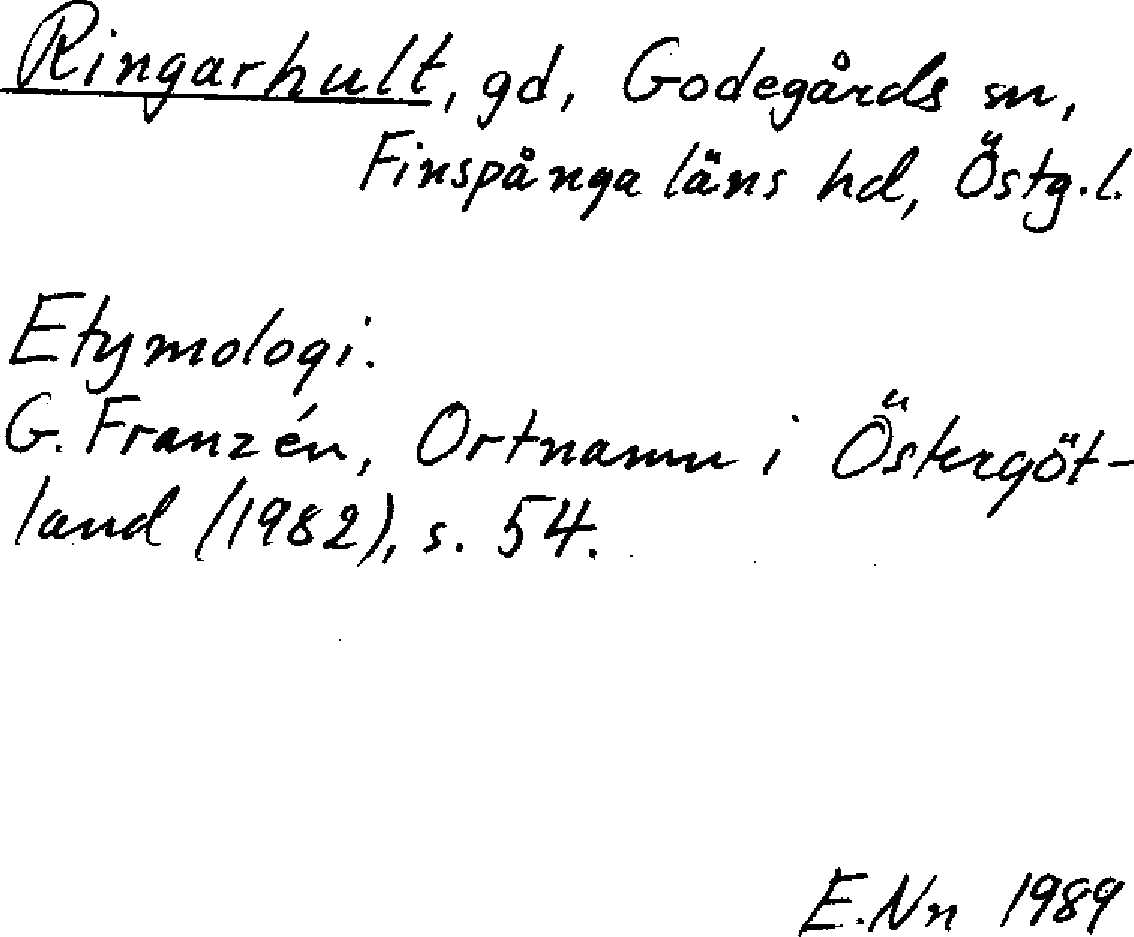 Ringarhult, gd, Godegårds sn,
Finspånga läns hd, Östg.l.
Etymologi.
G. Franzén, Ortnamn i Östergöt-
land (1982), s. 54.
E.Nn 1989